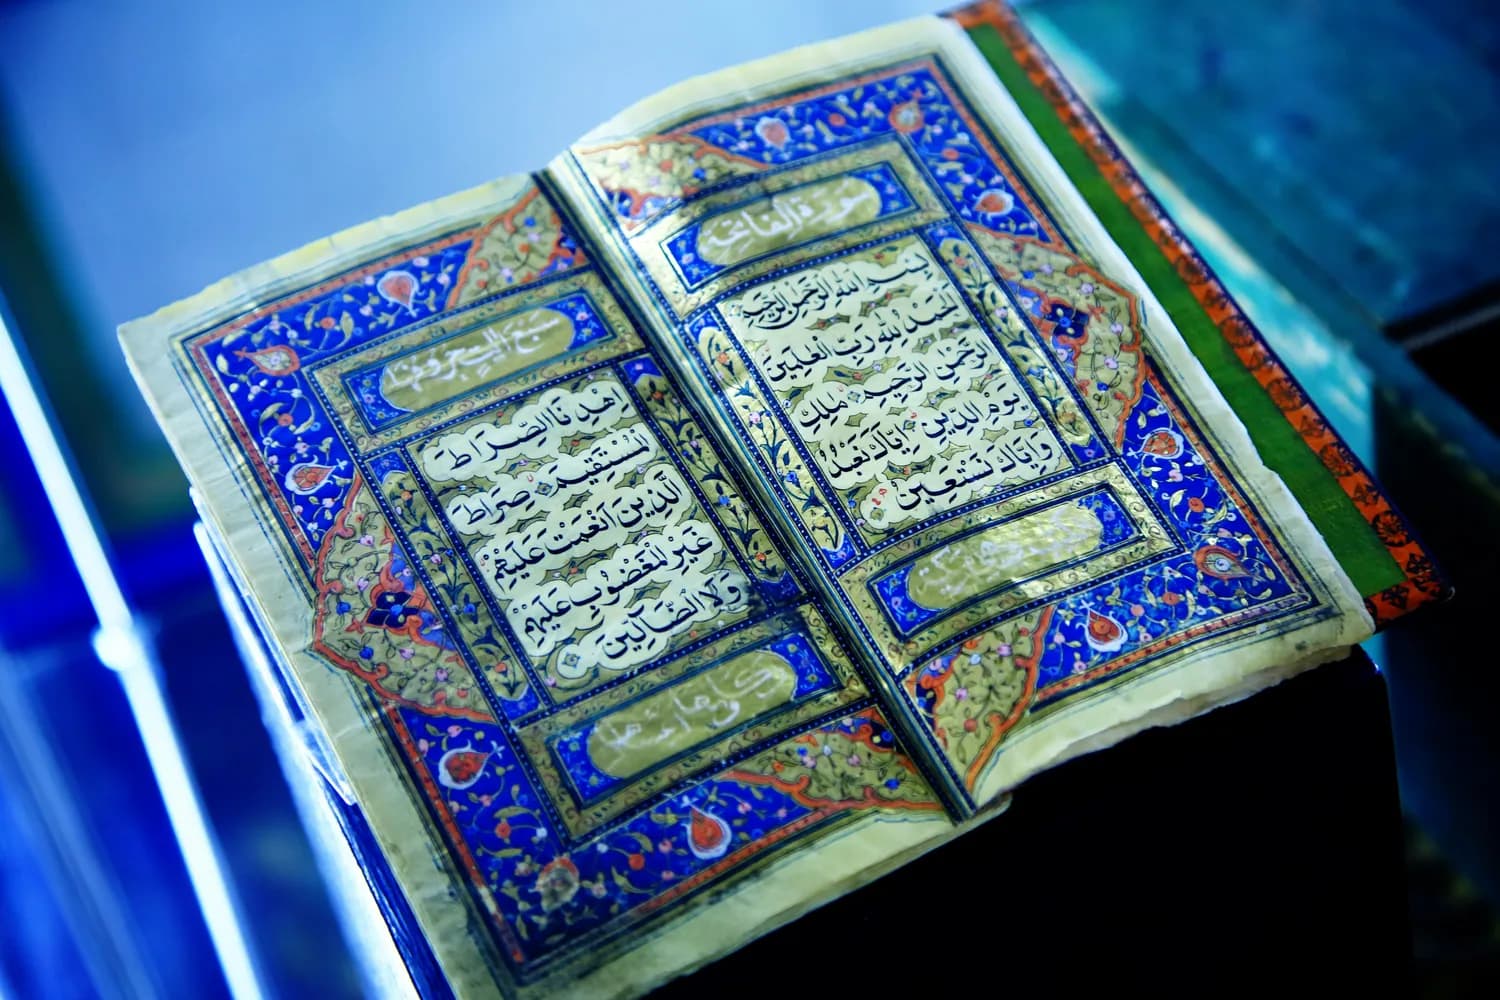 سورة الفاتحة
بِسْمِ اللهِ الرَّحْمٰنِ الرَّحِيْمِ
اَلْحَمْدُ لِلّٰهِ رَبِّ الْعٰلَمِيْنَ
الرَّحْمٰنِ الرَّحِيْمِ مٰلِكِ
يَوْمِ الدِّيْنِ اِيَّاكَ نَعْبُدُ
وَاِيَّاكَ نَسْتَعِيْنُ
سبع
اِهْدِنَا الصِّرَاطَ
الْمُسْتَقِيْمَ صِرَاطَ
الَّذِيْنَ اَنْعَمْتَ عَلَيْهِمْ
غَيْرِ الْمَغْضُوْبِ عَلَيْهِمْ
وَلَا الضَّآلِّيْنَ